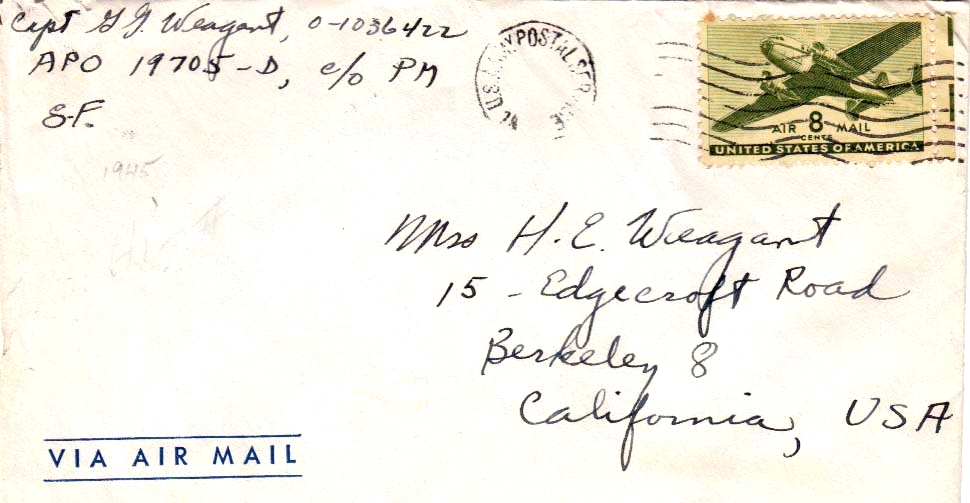 Capt G.G. Weagant, O-1036422
APO 19705-D, c/o PM
S.F.
1945
U.S. ARMY POSTAL SERVICE
AIR 8 MAIL
CENTS
UNITED STATES OF AMERICA
Mrs H. E. Weagant
15 - Edgecroft Road
Berkeley 8
California, USA
VIA AIR MAIL